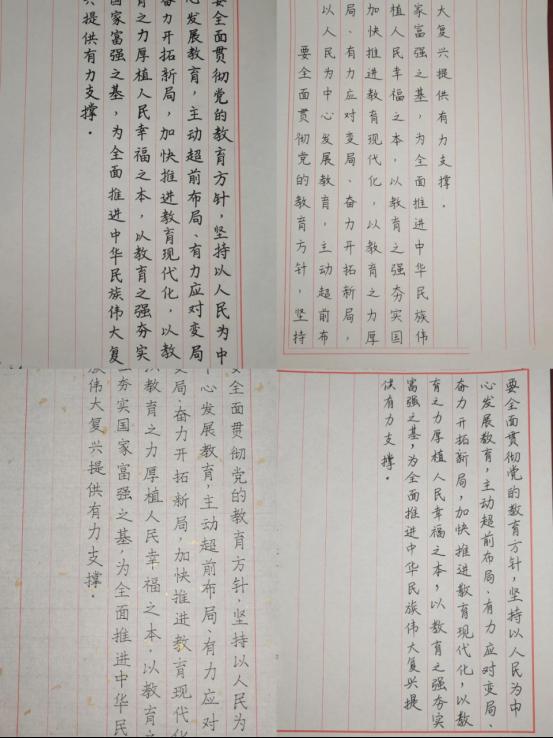 要全面贯彻党的教育方针，坚持以人民为中
心发展教育，主动超前布局、有力应对变局
奋力开拓新局，加快推进教育现代化，以教
育之力厚植人民幸福之本，以教育之强夯实
国家富强之基，为全面推进中华民族伟大复
兴提供有力支撑。
要全面贯彻党的教育方针，坚持
以人民为中心发展教育，主动超前布
局、有力应对变局、奋力开拓新局，
加快推进教育现代化，以教育之力厚
植人民幸福之本，以教育之强夯实国
家富强之基，为全面推进中华民族伟
大复兴提供有力支撑。
要全面贯彻党的教育方针，坚持以人民为
中心发展教育，主动超前布局、有力应对
变局、奋力开拓新局，加快推进教育现代化
以教育之力厚植人民幸福之本，以教育之
强夯实国家富强之基，为全面推进中华民
族伟大复兴提供有力支撑。
要全面贯彻党的教育方针，坚持以人民为中
心发展教育，主动超前布局、有力应对变局、
奋力开拓新局，加快推进教育现代化，以教
育之力厚植人民幸福之本，以教育之强夯实
富强之基，为全面推进中华民族伟大复兴提
供有力支撑。